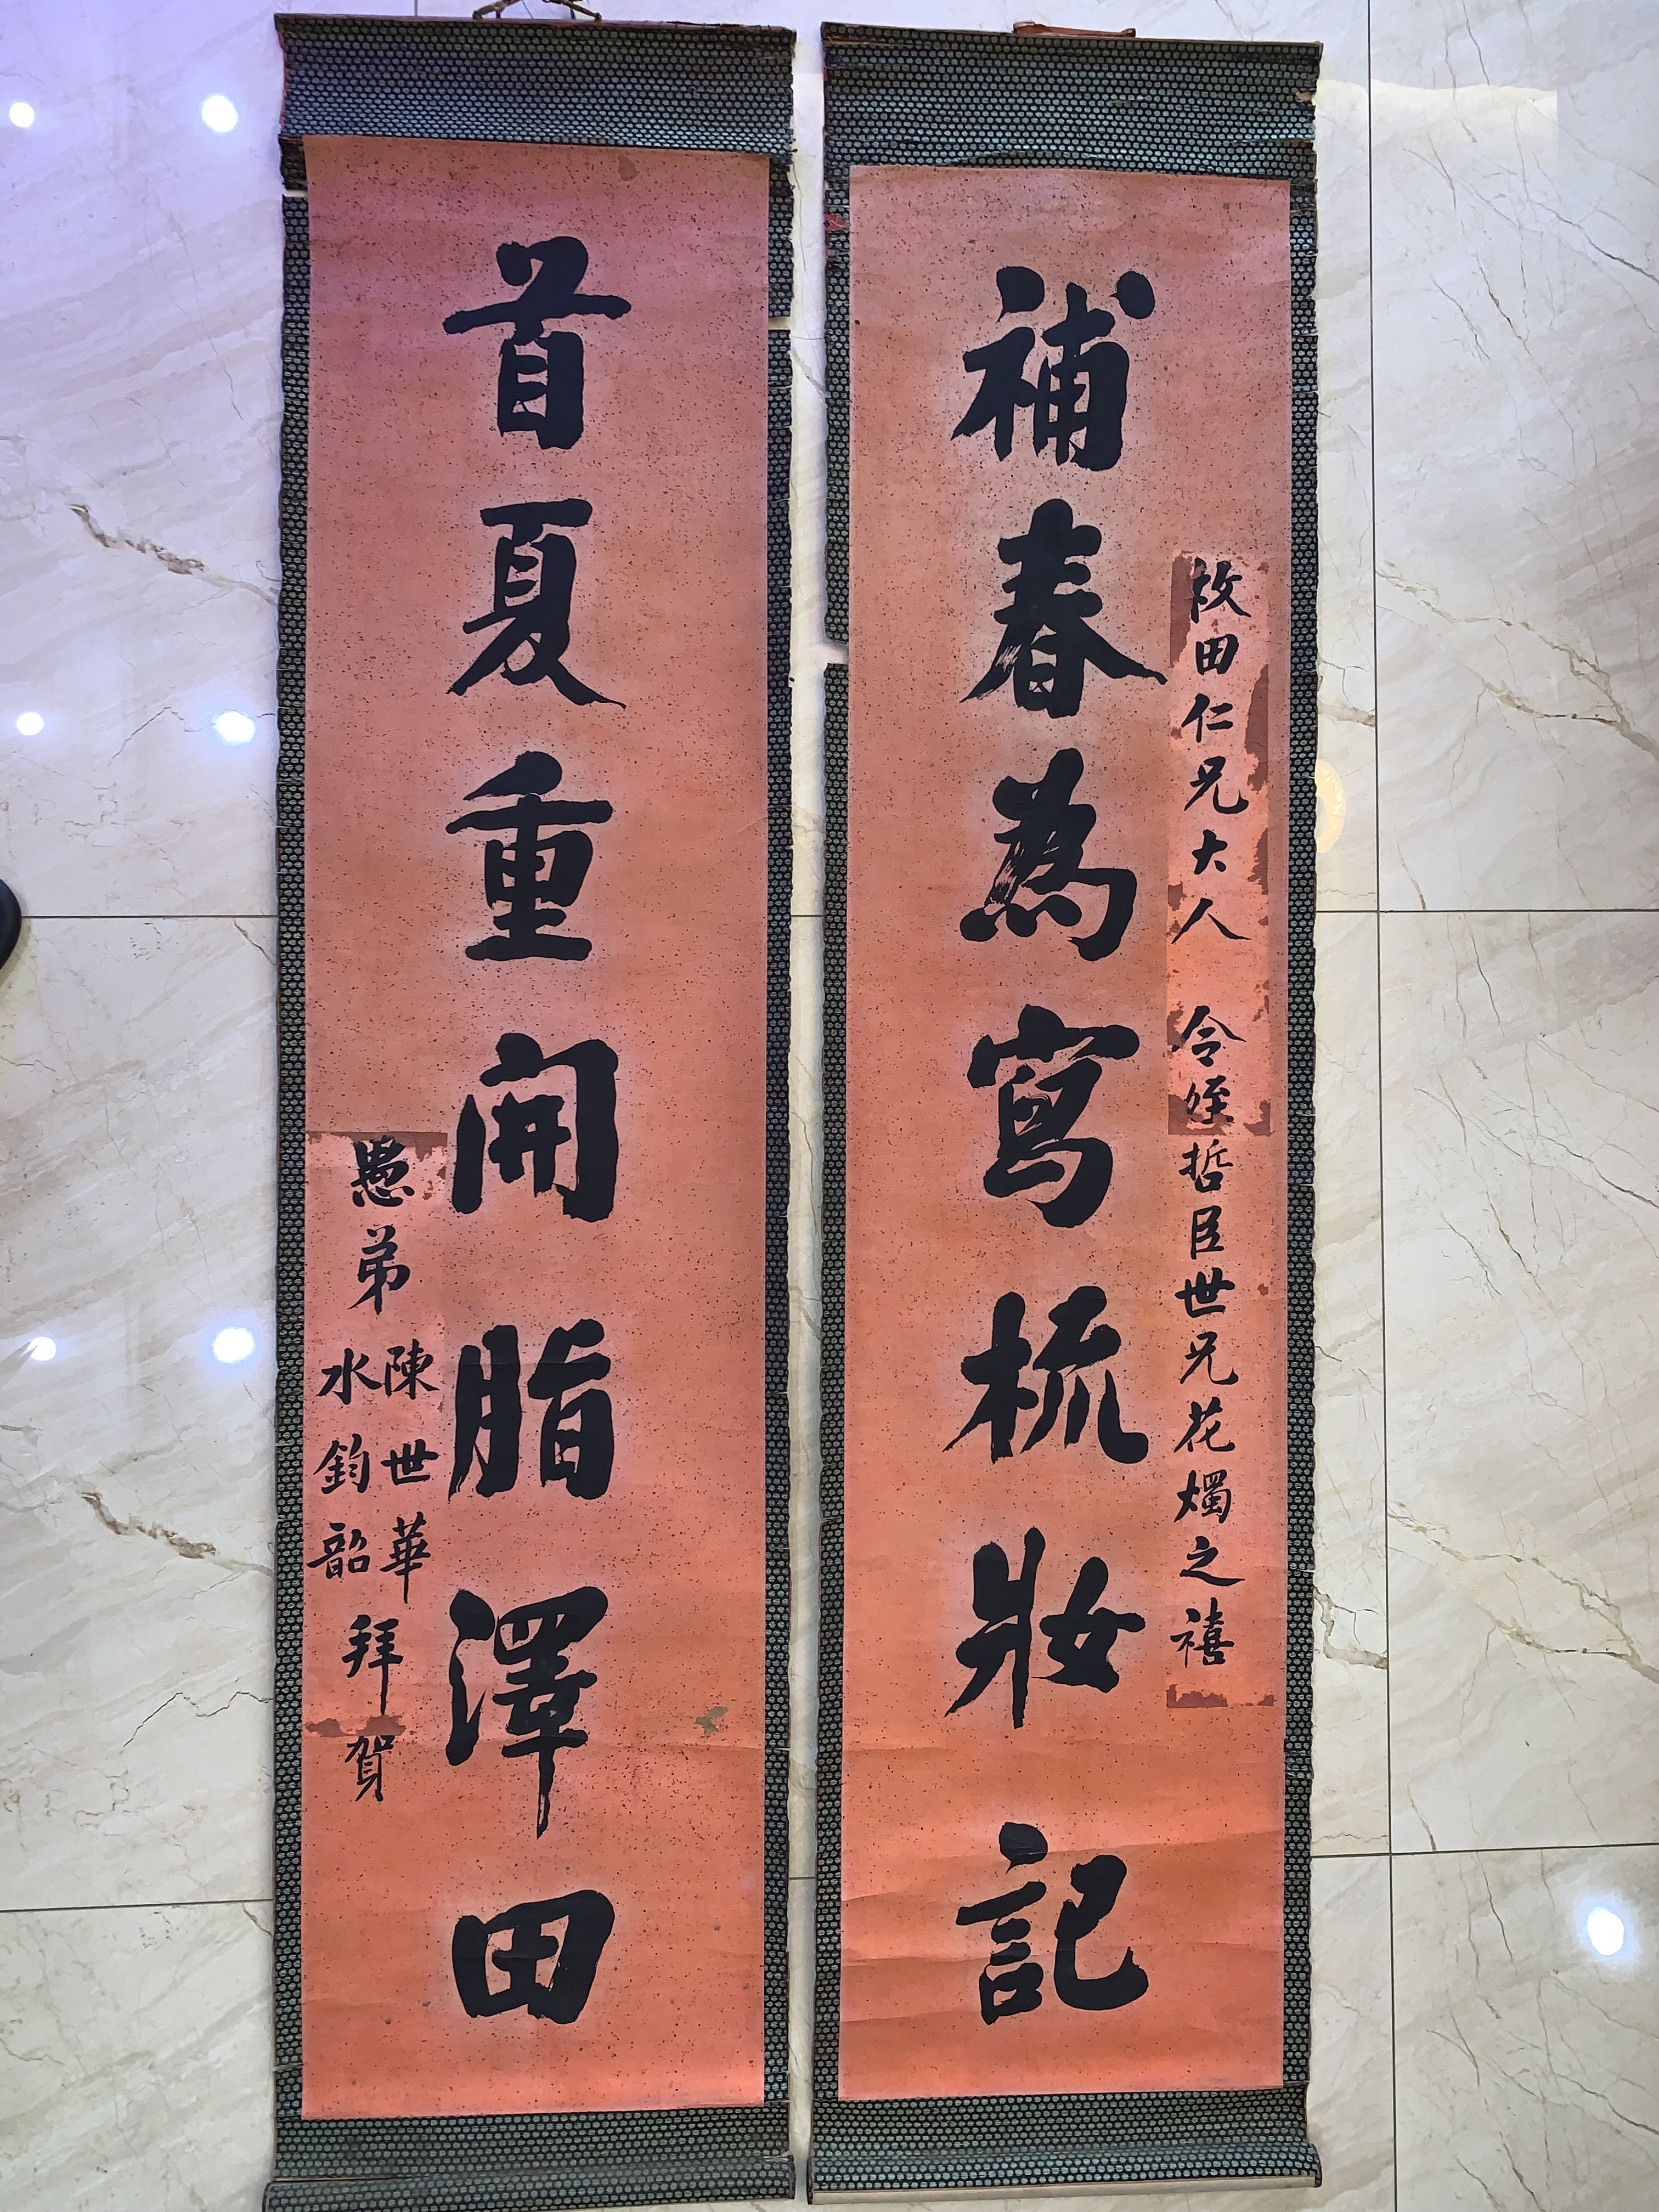 補春為寫梳妝記
枚田仁兄大人 令姪哲臣世兄花燭之禧
首夏重開脂澤田
愚弟
陳世華
水鈞韶
拜賀